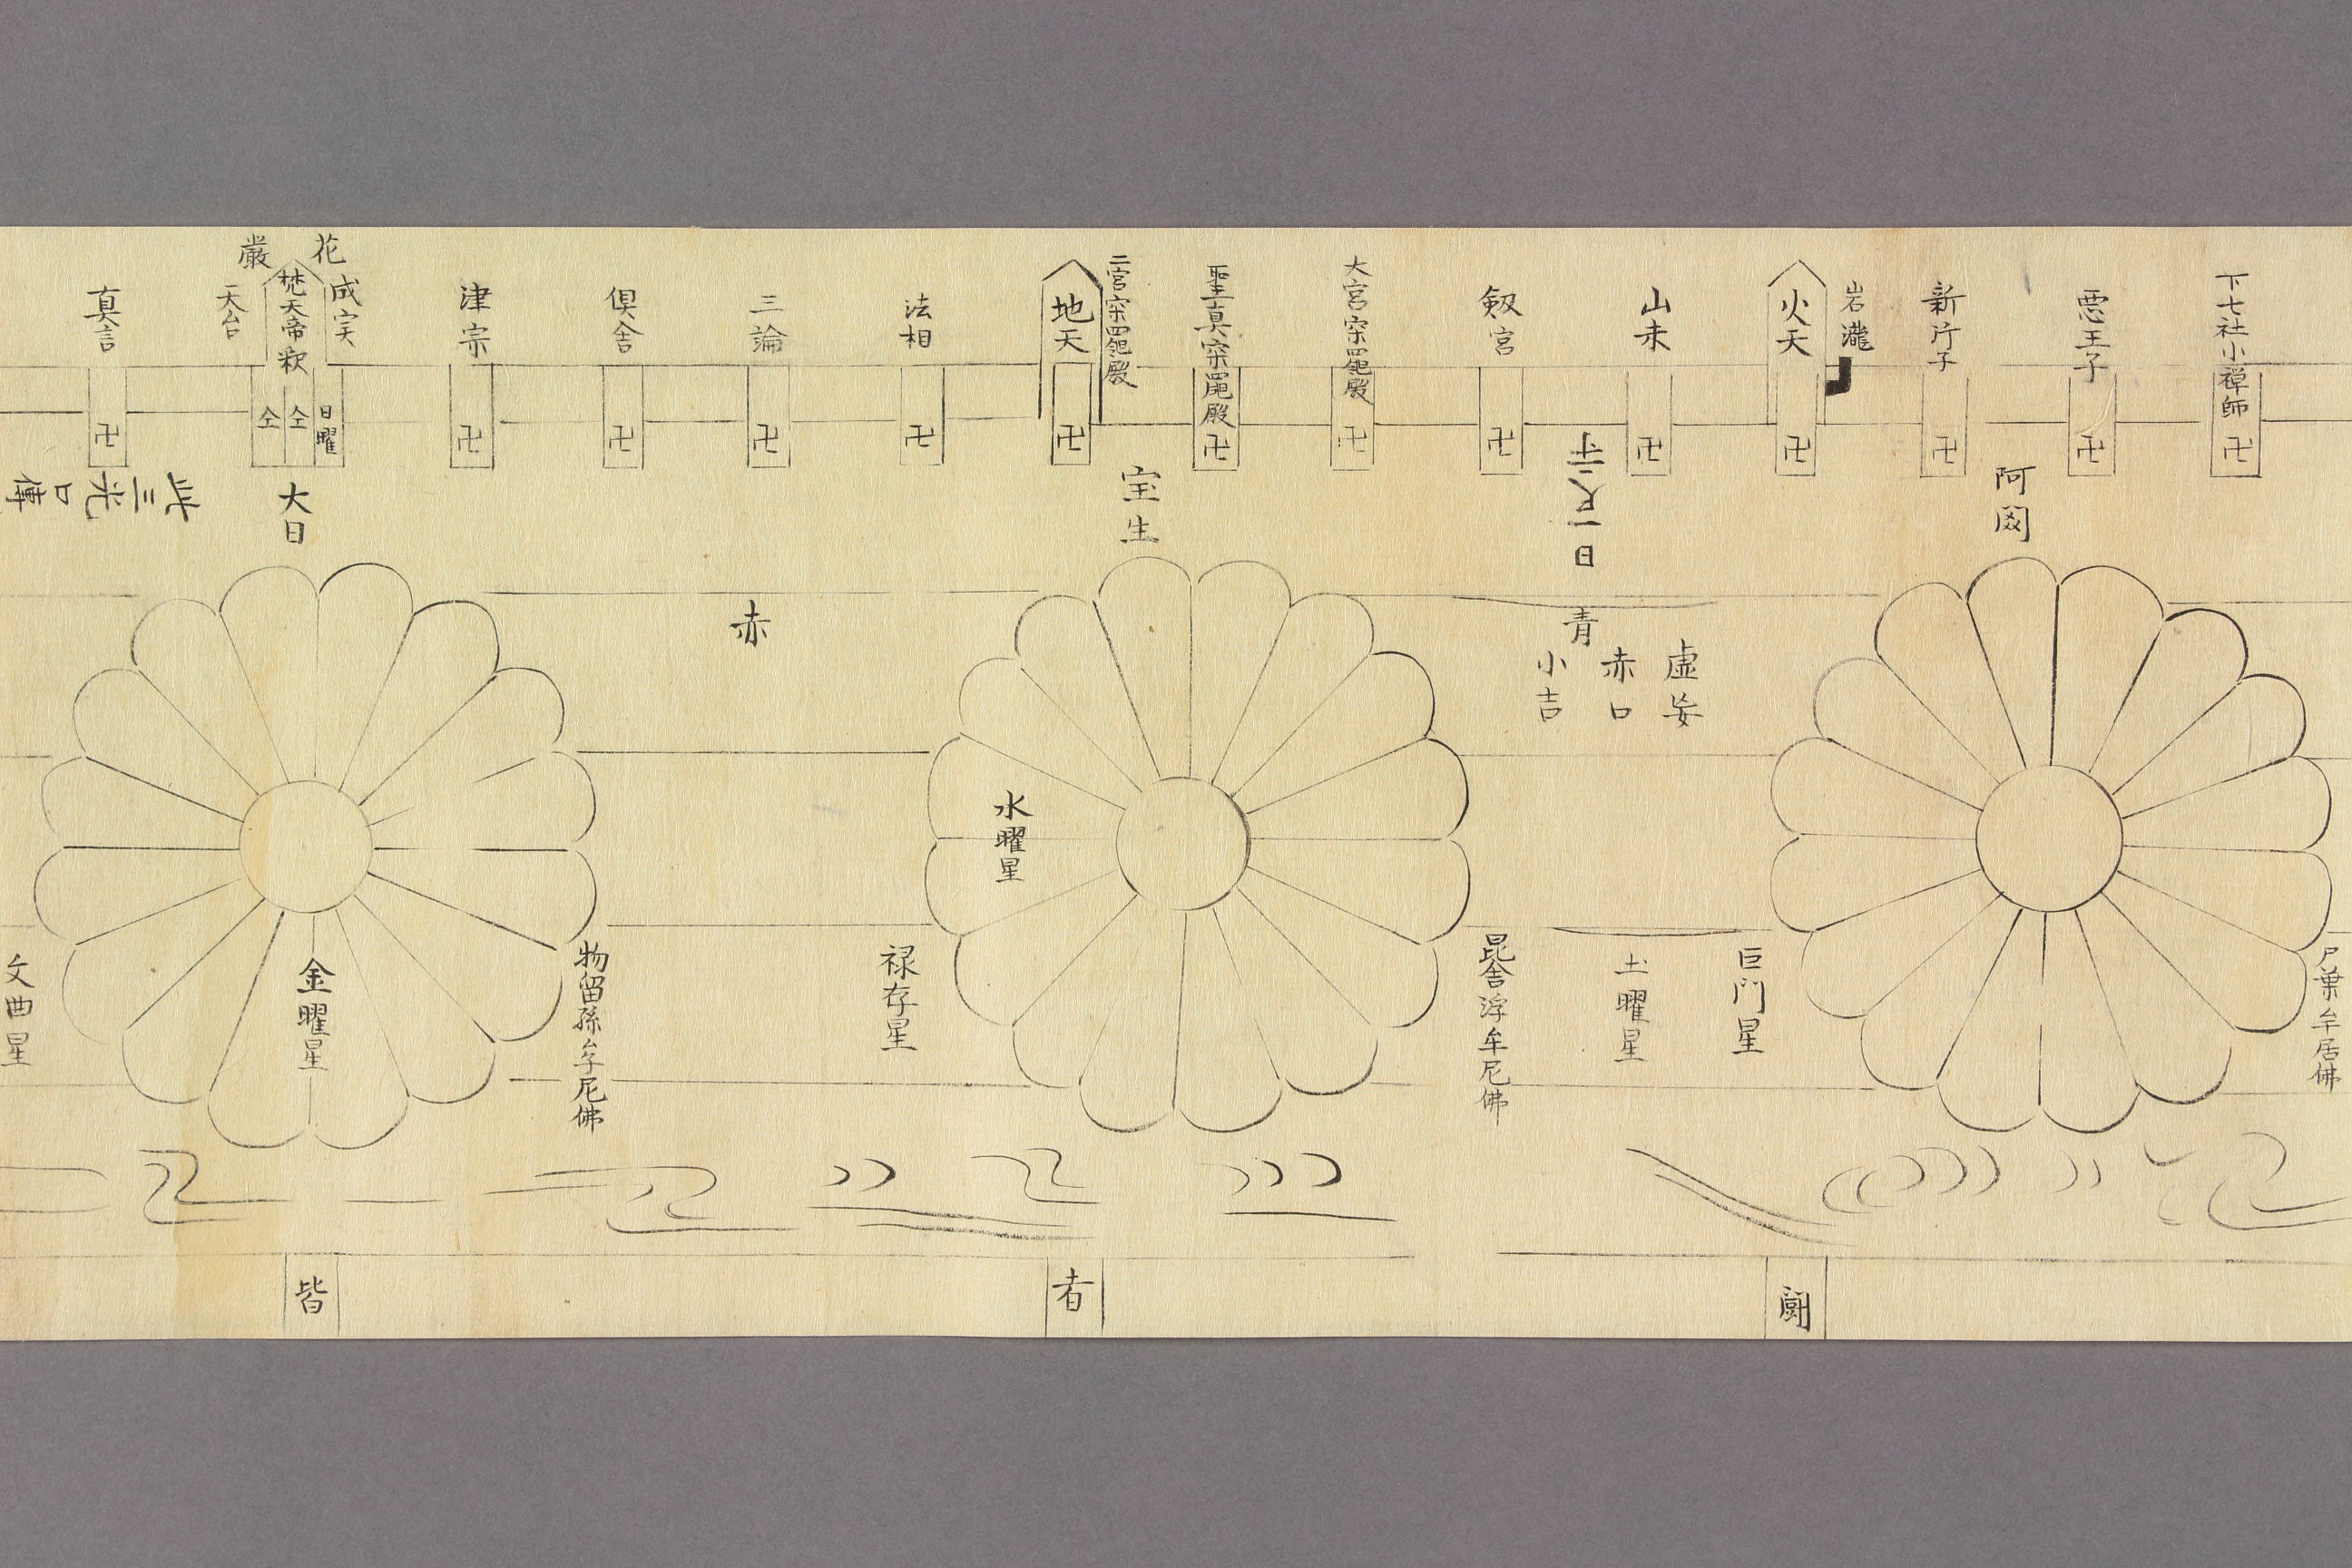 下七社小禅師
卍
悪王子
卍
新行子
卍
岩瀧
火天
卍
山末
卍
剱宮
卍
大宮
殿
卍
聖真
殿
卍
二宮
殿
地天
卍
法相
卍
三論
卍
倶舎
卍
津宗
卍
花
厳
成実
梵天帝釈
天台
日曜
真言
卍
阿閦
二尺一寸
日
宝生
大日
此三光口傳
青
虚妄
赤口
小吉
赤
尸葉牟居佛
巨門星
土曜星
毘舎浮牟尼佛
水曜星
禄存星
物留孫牟尼佛
金曜星
文曲星
闘
者
皆